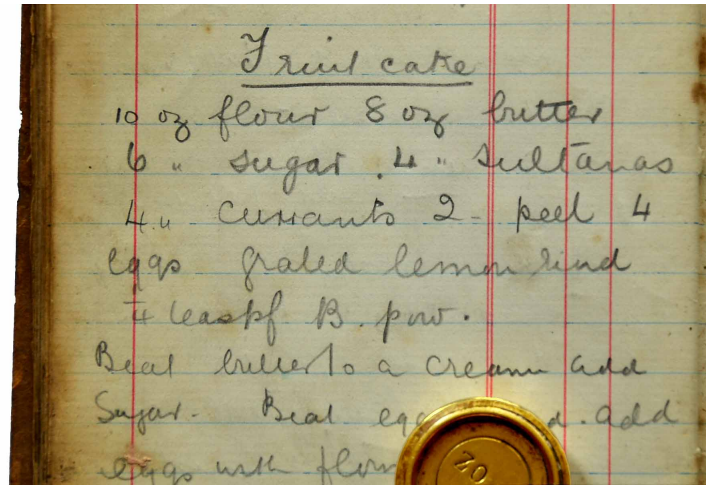 Fruit cake
10 oz flour 8 oz butter
6 " sugar . 4 " sultanas
4 " currants 2 - peel 4
eggs grated lemon rind
teaspf B. pow.
Beat butter to a cream add
Sugar. Beat add
eggs with
ZO